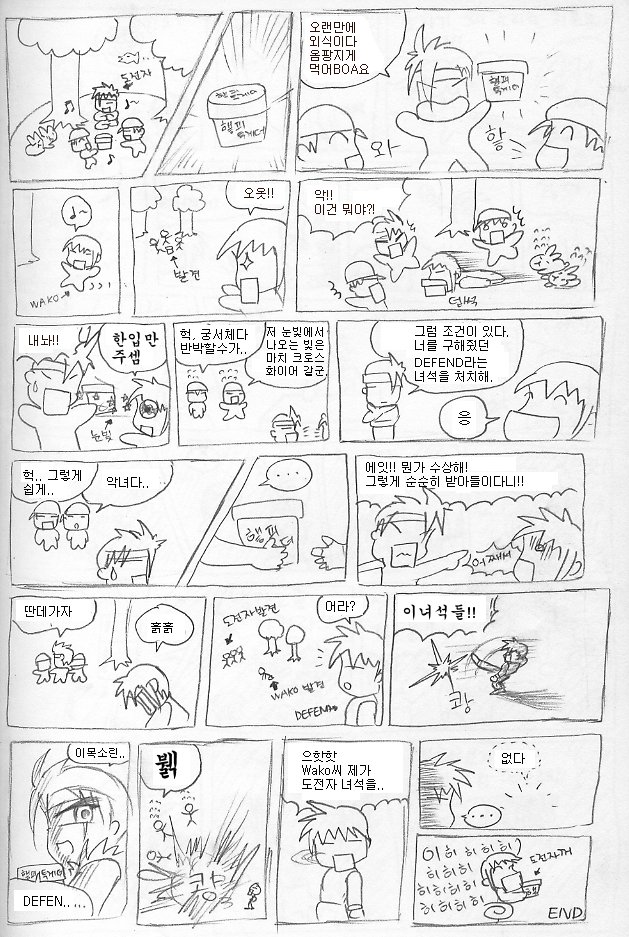 도전자
해피
투게더
오랜만에
외식이다
옴팡지게
먹어BOA요
해피
투게더
와
핳
WAKO
오옷!!
발견
악!!
이건 뭐야?!
덥썩
내놔!!
한입 만
주셈
눈빛
헉, 궁서체다
반박할수가..
저 눈빛에서
나오는 빛은
마치 크로스
화이어 같군.
그럼 조건이 있다.
너를 구해줬던
DEFEND라는
녀석을 처치해.
응
헉.. 그렇게
쉽게..
악녀다..
....
에잇!! 뭔가 수상해!
그렇게 순순히 받아들이다니!!
어째서
딴데가자
흙흙
도전자발견
어라?
WAKO 발견
DEFEND
이녀석들!!
쾅
이목소린..
DEFEN.....
뷁
쾅
으핫핫
Wako씨 제가
도전자 녀석을..
없다
....
이히히히히!
히히히히
히히히히
히히히히
도전자꺼
END